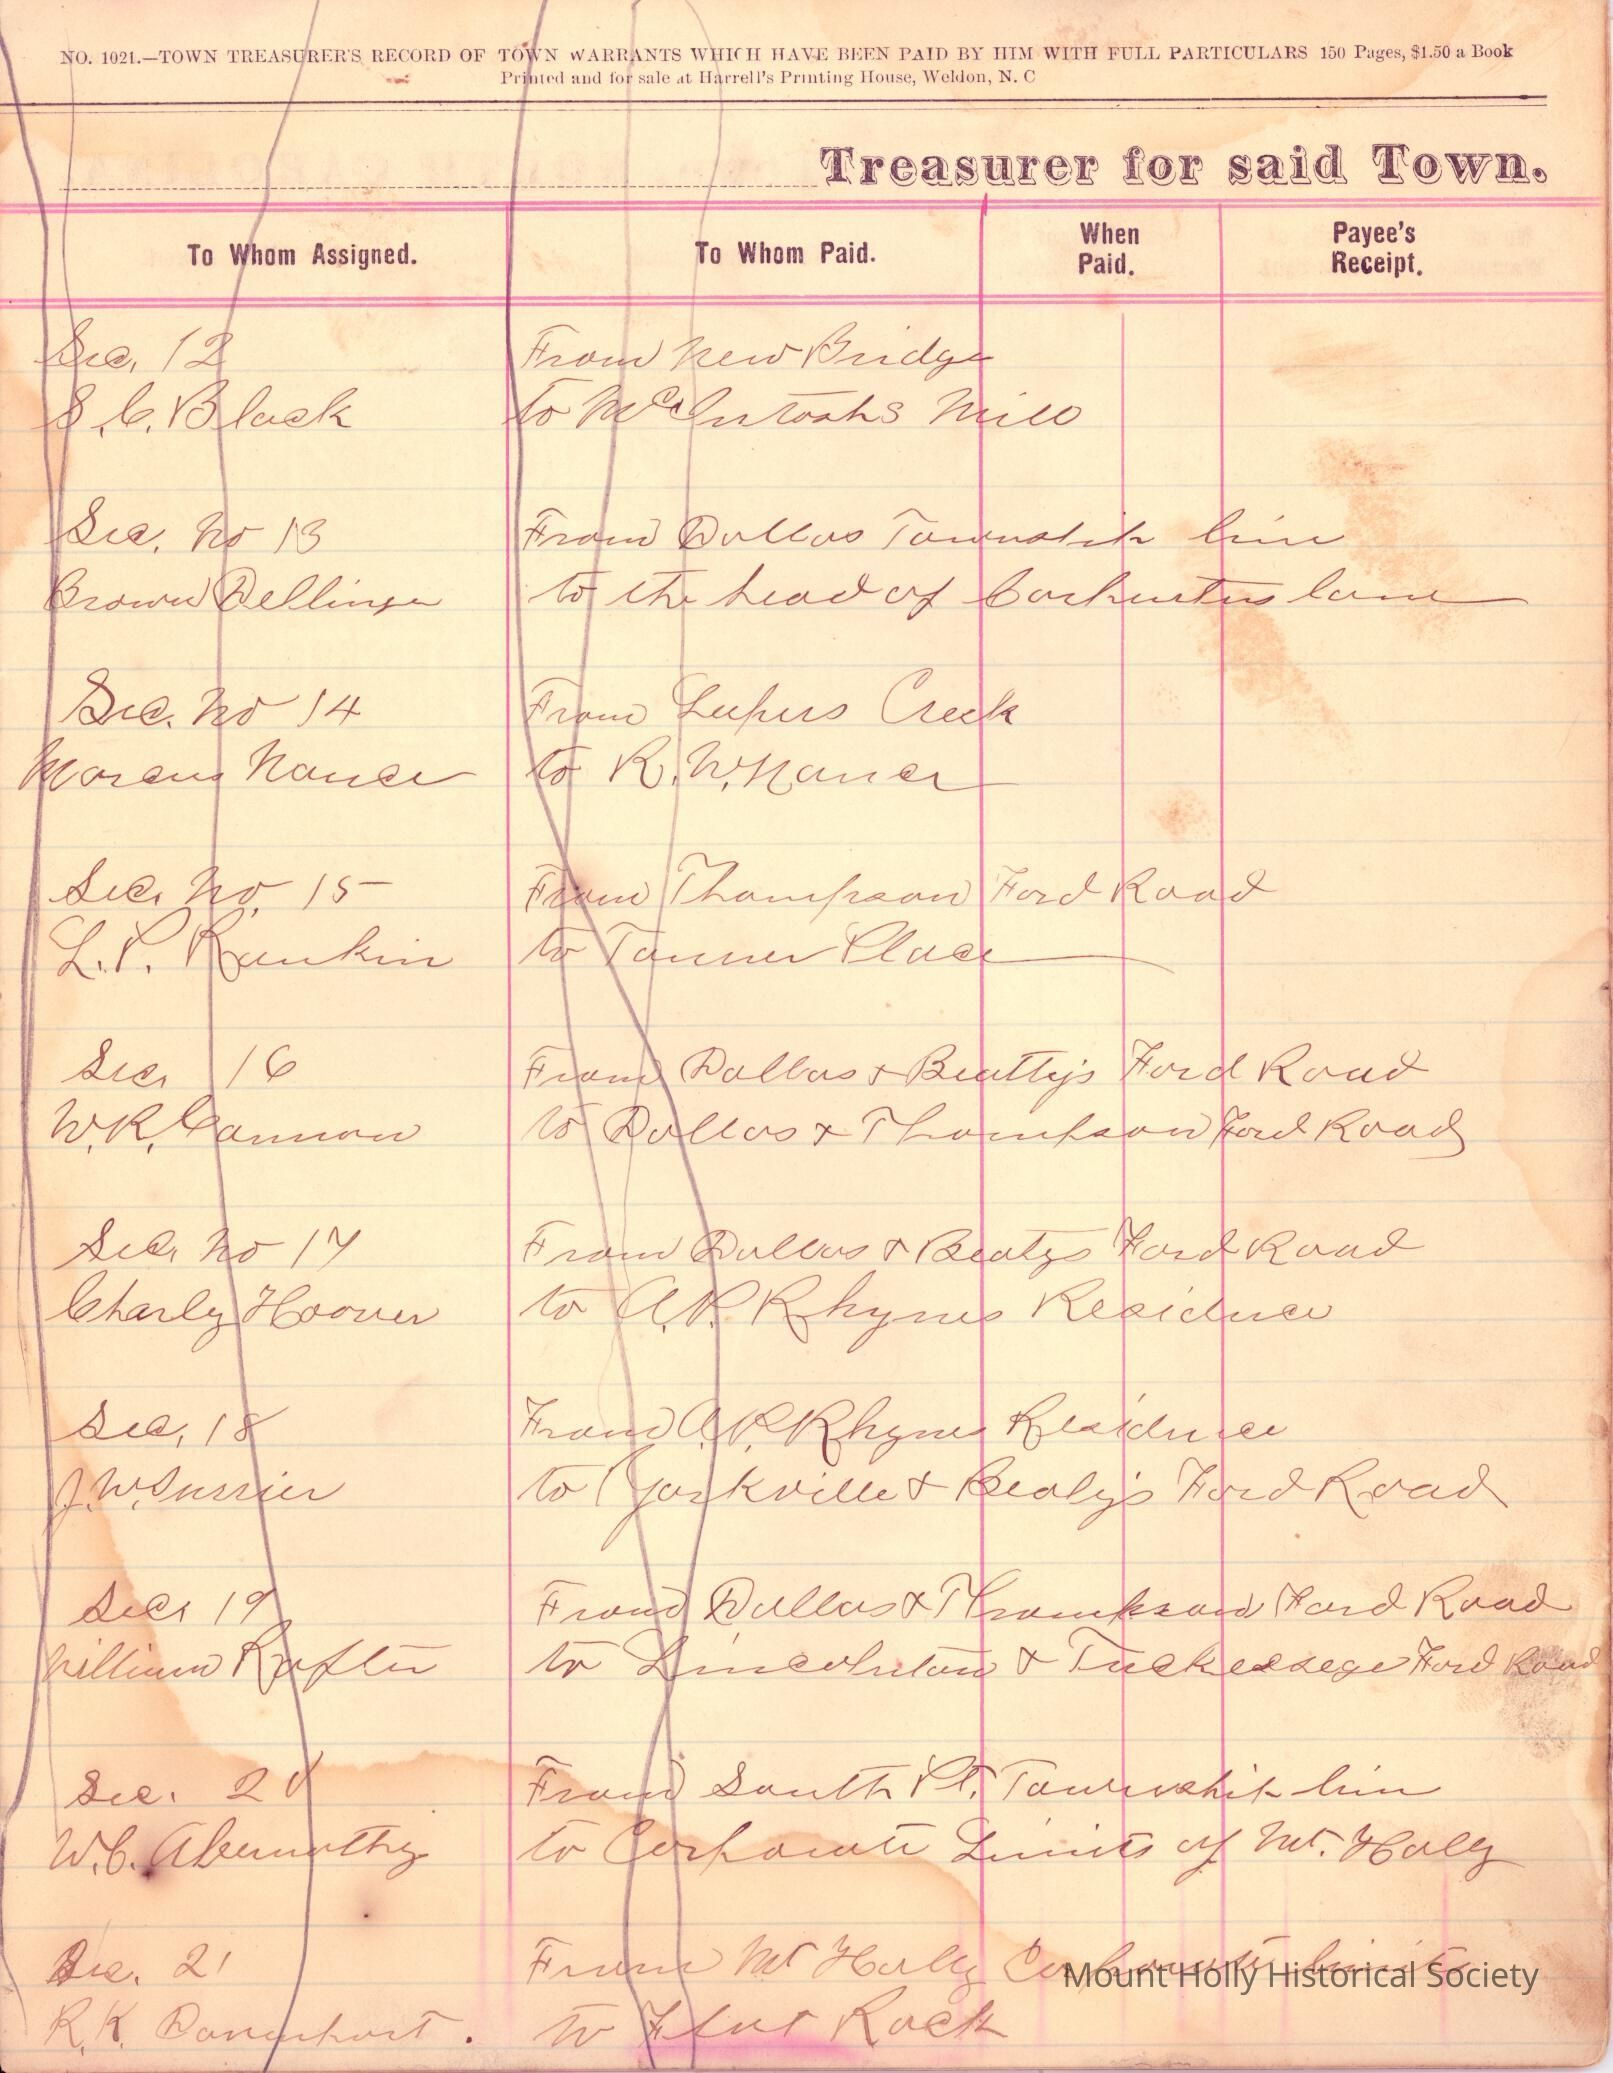 NO. 1021.—TOWN TREASURER'S RECORD OF TOWN WARRANTS WHICH HAVE BEEN PAID BY HIM WITH FULL PARTICULARS 150 Pages, $1.50 a Book
Printed and for sale at Harrell's Printing House, Weldon, N. C
Treasurer for said Town.
To Whom Assigned. To Whom Paid. When Paid. Payee's Receipt.
Sec. 12 From New Bridge
S. C. Black to McIntoshs Mill
Sec. No 13 From Dallas Township line
Brown Dellinger to the head of lane
Sec. No 14 From Lepers Creek
Marcus Nance to R. W. Nance
Sec. No. 15 From Thompson Ford Road
L. P. Rankin to Tanner Place
Sec. 16 From Dallas & Beattys Ford Road
W. R. Cannon to Dallas & Thompson Ford Road
Sec. No 17 From Dallas & Beatys Ford Road
Charly Hoover to A. P. Rhynes Residence
Sec. 18 From A. P. Rhynes Residence
J. W. to Yorkville & Beatys Ford Road
Sec. 19 From Dallas & Thompson Ford Road
William Rafter to Lincolnton & Tuckessege Ford Road
Sec. 20 From South Pt. Township line
W. C. Abernathy to Corporate Limits of Mt. Holly
Sec. 21 From Mt Holly Corporate limits
R. K. Davenport. to Flint Rock
Mount Holly Historical Society